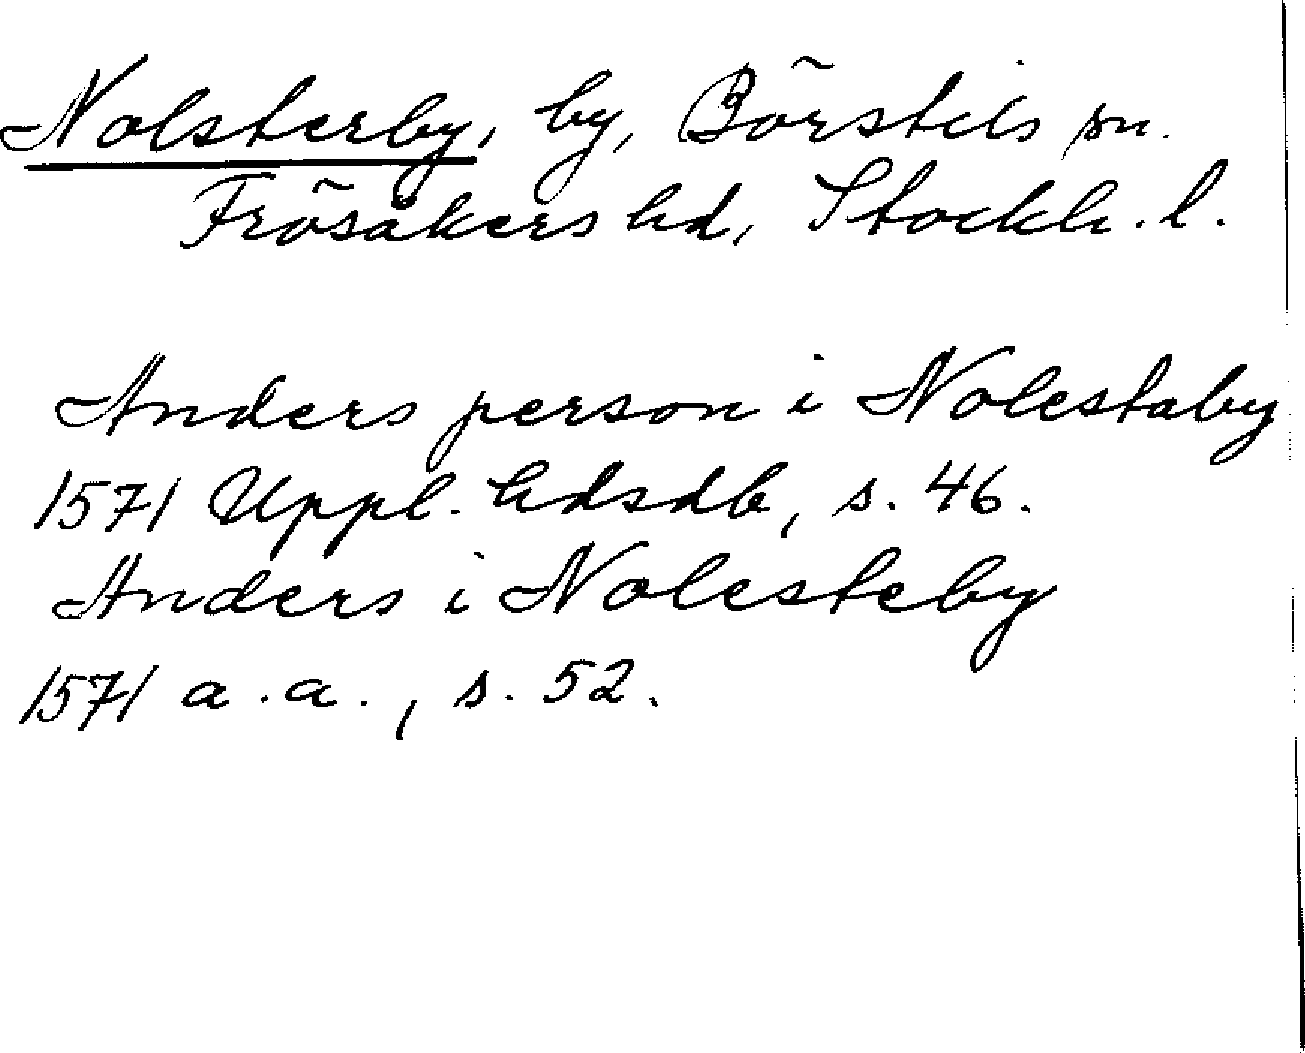 Nolsterby, by, Börstils sn.
Frösåkers hd, Stockh. l.
Anders person i Nolestaby
1571 Uppl. hdsdb, s. 46.
Anders i Nolesteby
1571 a.a., s. 52.